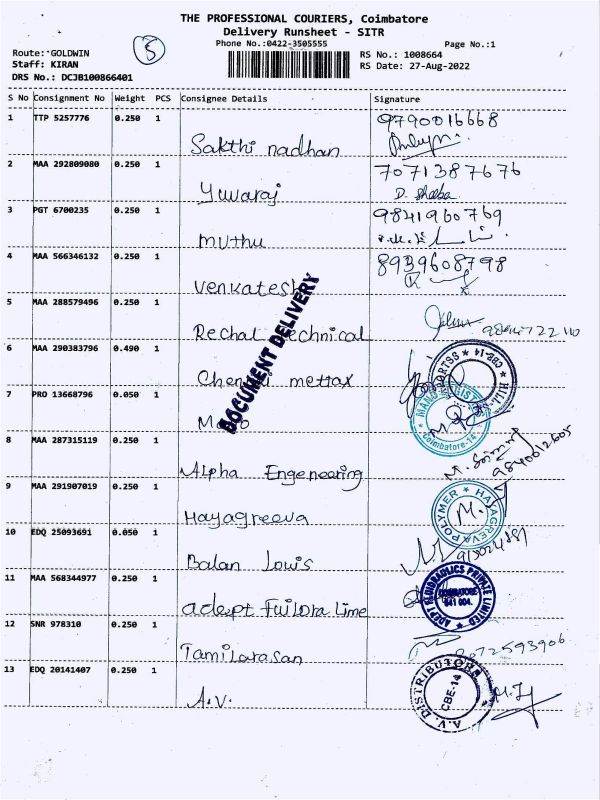 THE PROFESSIONAL COURIERS, Coimbatore
Delivery Runsheet - SITR
Phone No.:0422-3505555
Page No.:1
Route: GOLDWIN
Staff: KIRAN
DRS No.: DCJB100866401
5
RS No.: 1008664
RS Date: 27-Aug-2022
S No Consignment No Weight PCS Consignee Details Signature
1 TTP 5257776 0.250 1 Sakthi nadhan 9790016668
2 MAA 292809080 0.250 1 Yuvaraj 7071387676
D. Sheeba
3 PGT 6700235 0.250 1 Muthu 9841960769
4 MAA 566346132 0.250 1 Venkatesh 8939608798
5 MAA 288579496 0.250 1 Rechal technical
6 MAA 290383796 0.490 1 Chennai mettax
7 PRO 13668796 0.050 1
DOCUMENT DELIVERY
CBE-14
Coimbatore-14
8 MAA 287315119 0.250 1 Alpha Engeneering
9840612605
9 MAA 291907019 0.250 1 Hayagreeva
HAYAGREEVA POLYMER
10 EDQ 25093691 0.050 1 Balan Lowis
11 MAA 568344977 0.250 1 adept Fuilora lime
ADEPT FLUIDRAULICS PRIVATE LIMITED
COIMBATORE
641 004.
12 SNR 978310 0.250 1 Tamilarasan
13 EDQ 20141407 0.250 1 A.V.
A.V. DISTRIBUTOR
CBE-14